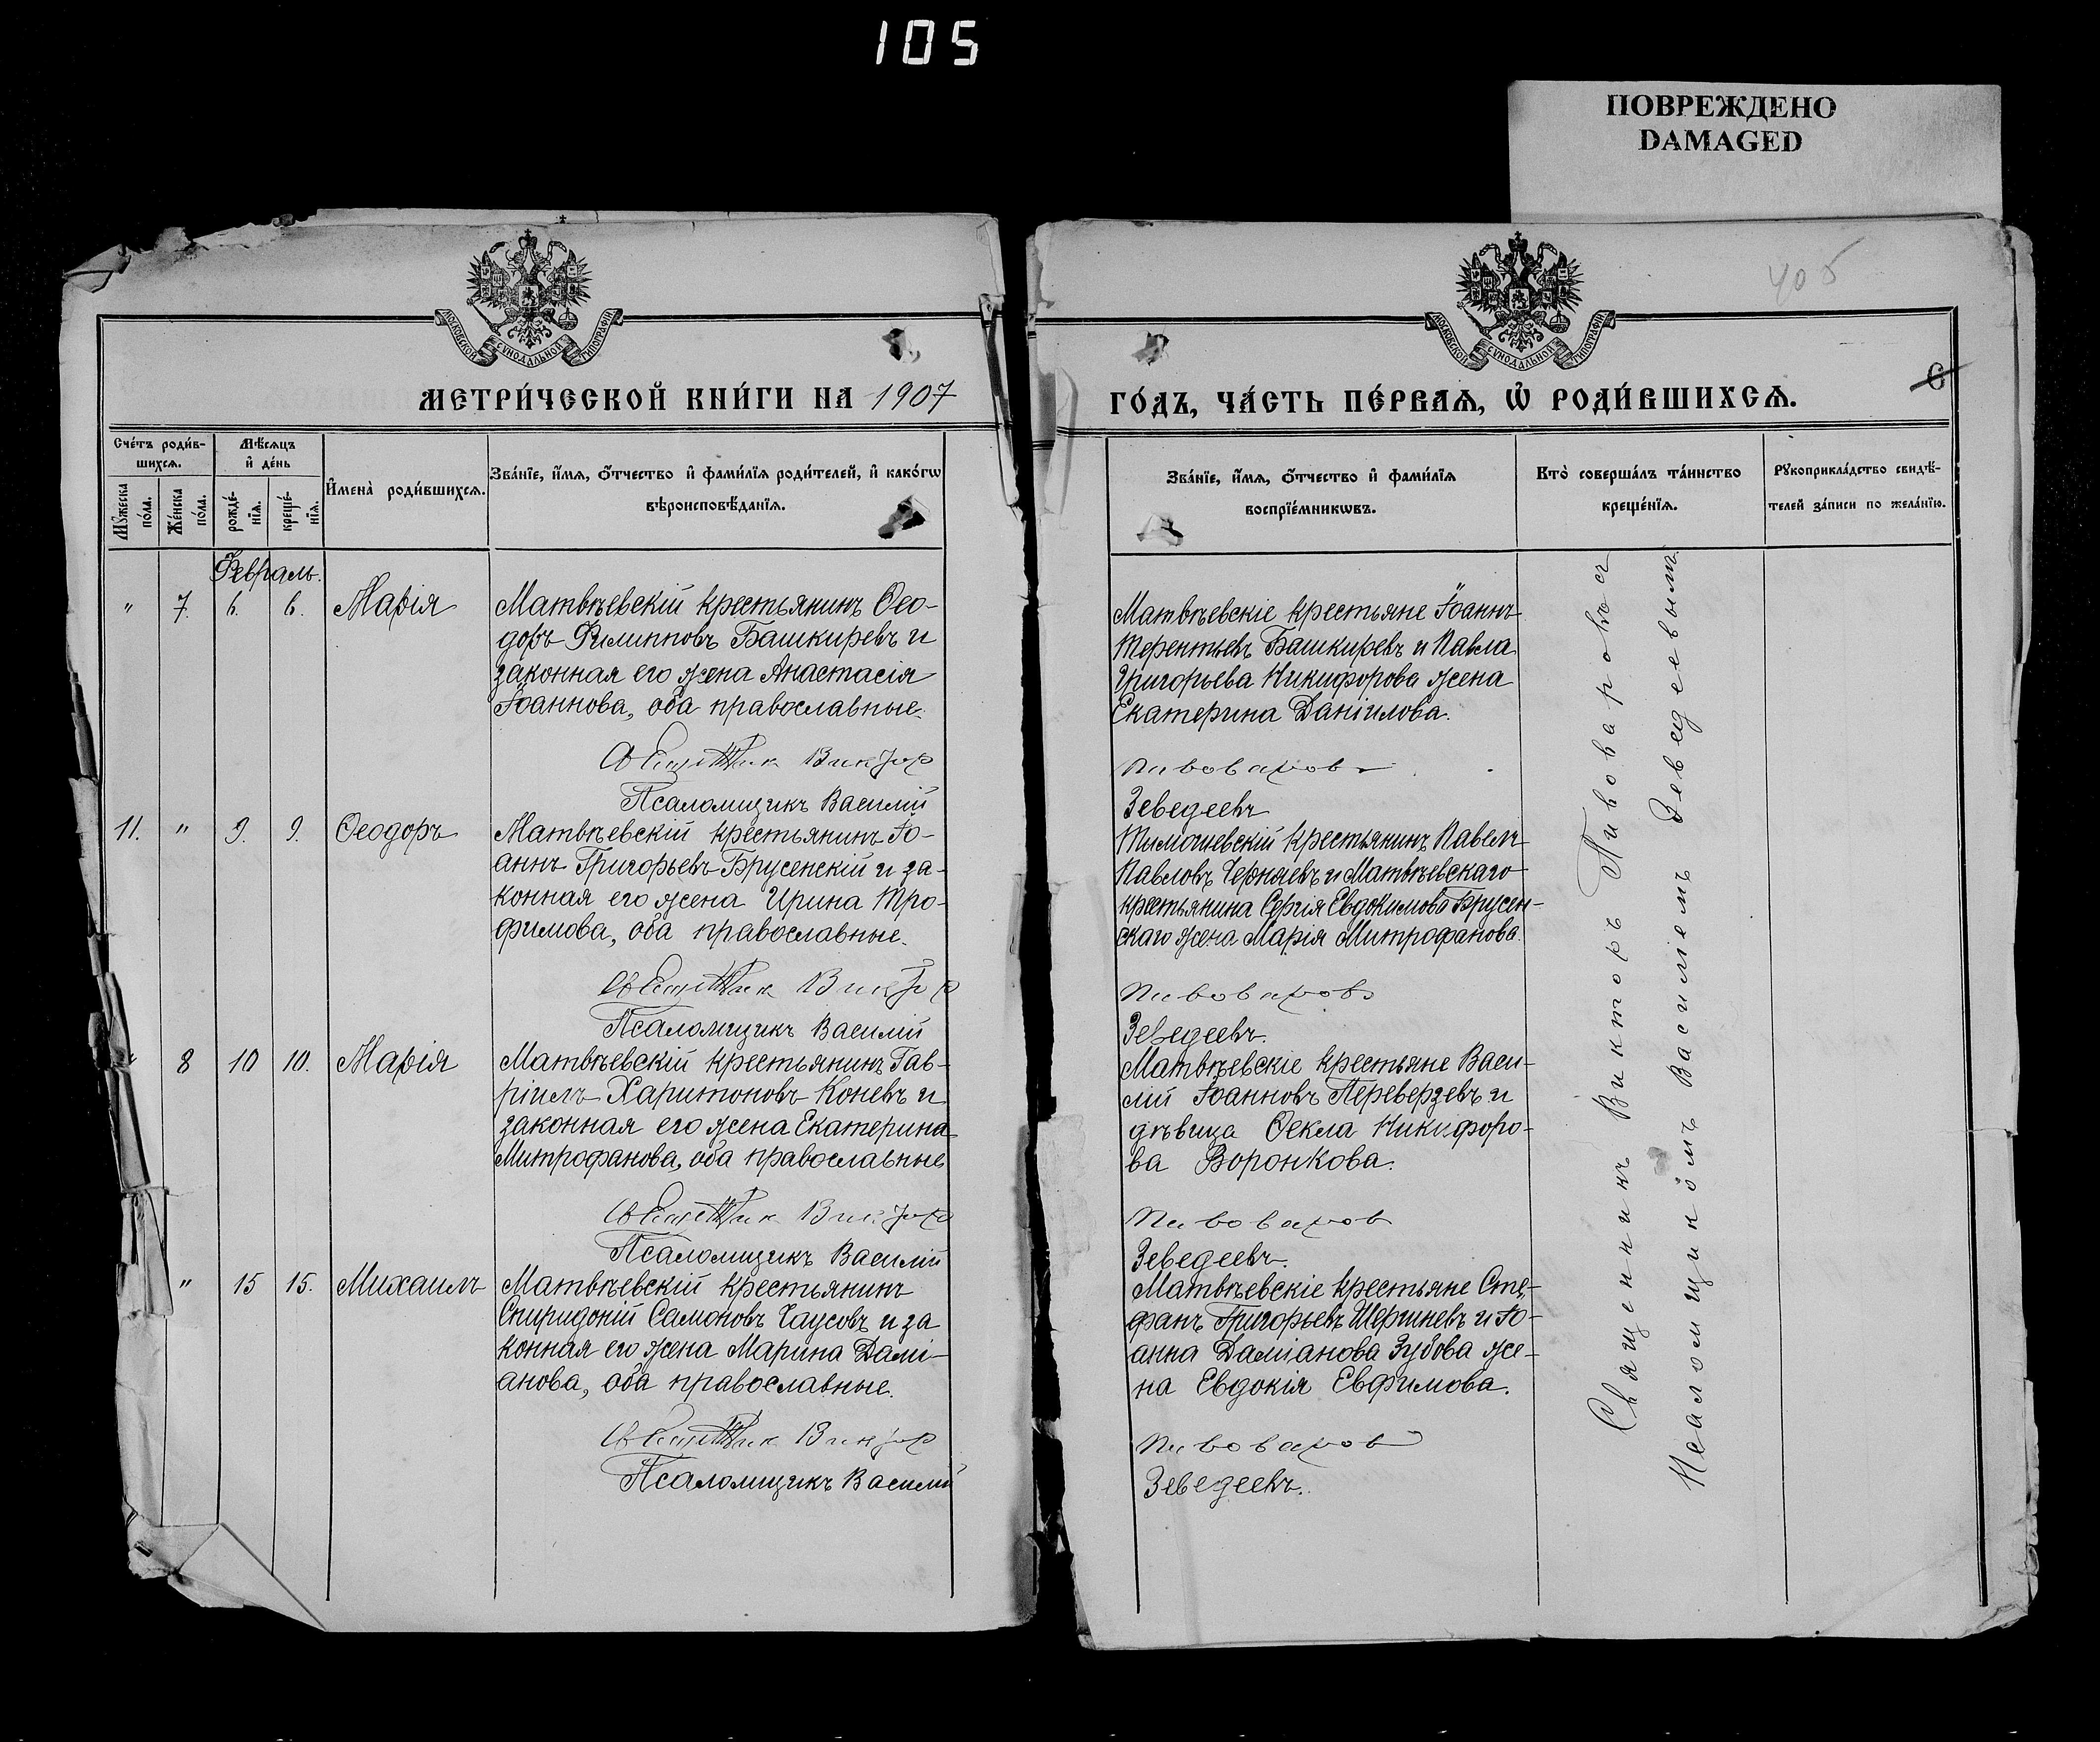 105
ПОВРЕЖДЕНО
DAMAGED
405
МОСКОВСКОЙ СѴНОДАЛЬНОЙ ТИПОГРАФІИ
МОСКОВСКОЙ СѴНОДАЛЬНОЙ ТИПОГРАФІИ
МЕТРИ́ЧЕСКОЙ КНИ́ГИ НА 1907
ГО́ДЪ, ЧА́СТЬ ПЕ́РВАѦ, Ѡ РОДИ́ВШИХСѦ.
6
Сче́тъ роди́в-
шихсѧ.
Мѣ́сѧцъ
и҆ де́нь
Мꙋ́жеска
по́ла.
Же́нска
по́ла.
рожде́-
нїѧ.
креще́-
нїѧ.
И҆мена̀ роди́вшихсѧ.
Зва́нїе, и҆́мѧ, ѻ҆́тчество и҆ фами́лїѧ роди́телей, и҆ како́гѡ
вѣроисповѣ́данїѧ.
Зва́нїе, и҆́мѧ, ѻ҆́тчество и҆ фами́лїѧ
воспрїе́мникѡвъ.
Кто̀ соверша́лъ та́инство
креще́нїѧ.
Рꙋкоприкла́дство свидѣ́-
телей за́писи по жела́нїю.
Февраль.
" 7. 6. 6. Марія
Матвѣевскій крестьянинъ Ѳео-
доръ Филипповъ Башкиревъ и
законная его жена Анастасія
Іоаннова, оба православные.
Священник Виктор
Псаломщикъ Василій
Матвѣевскіе крестьяне Іоаннъ
Терентьевъ Башкиревъ и Павла
Григорьева Никифорова жена
Екатерина Даніилова.
Пивоваровъ
Зеведеевъ
11. " 9. 9. Ѳеодоръ
Матвѣевскій крестьянинъ Іо-
аннъ Григорьевъ Брусенскій и за-
конная его жена Ирина Тро-
фимова, оба православные.
Священник Виктор
Псаломщикъ Василій
Тимошевскій крестьянинъ Павелъ
Павловъ Черняевъ и Матвѣевскаго
крестьянина Сергія Евдокимова Брусен-
скаго жена Марія Митрофанова.
Пивоваровъ
Зеведеевъ.
" 8 10 10. Марія
Матвѣевскій крестьянинъ Гав-
ріилъ Харитоновъ Коневъ и
законная его жена Екатерина
Митрофанова, оба православные
Священник Виктор
Псаломщикъ Василій
Матвѣевскіе крестьяне Васи-
лій Іоанновъ Переверзевъ и
дѣвица Ѳекла Никифоро-
ва Воронкова.
Пивоваров
Зеведеевъ.
" 15 15. Михаилъ
Матвѣевскій крестьянинъ
Спиридоній Самоновъ Чаусовъ и за
конная его жена Марина Дамі-
анова, оба православные.
Священник Виктор
Псаломщикъ Василій
Матвѣевскіе крестьяне Сте-
фанъ Григорьевъ Шершневъ и Іо-
анна Даміанова Зубова же-
на Евдокія Евфимова.
Пивоваров
Зеведеевъ.
Священникъ Викторъ Пивоваровъ съ
Псаломщикомъ Василіемъ Зеведеевымъ